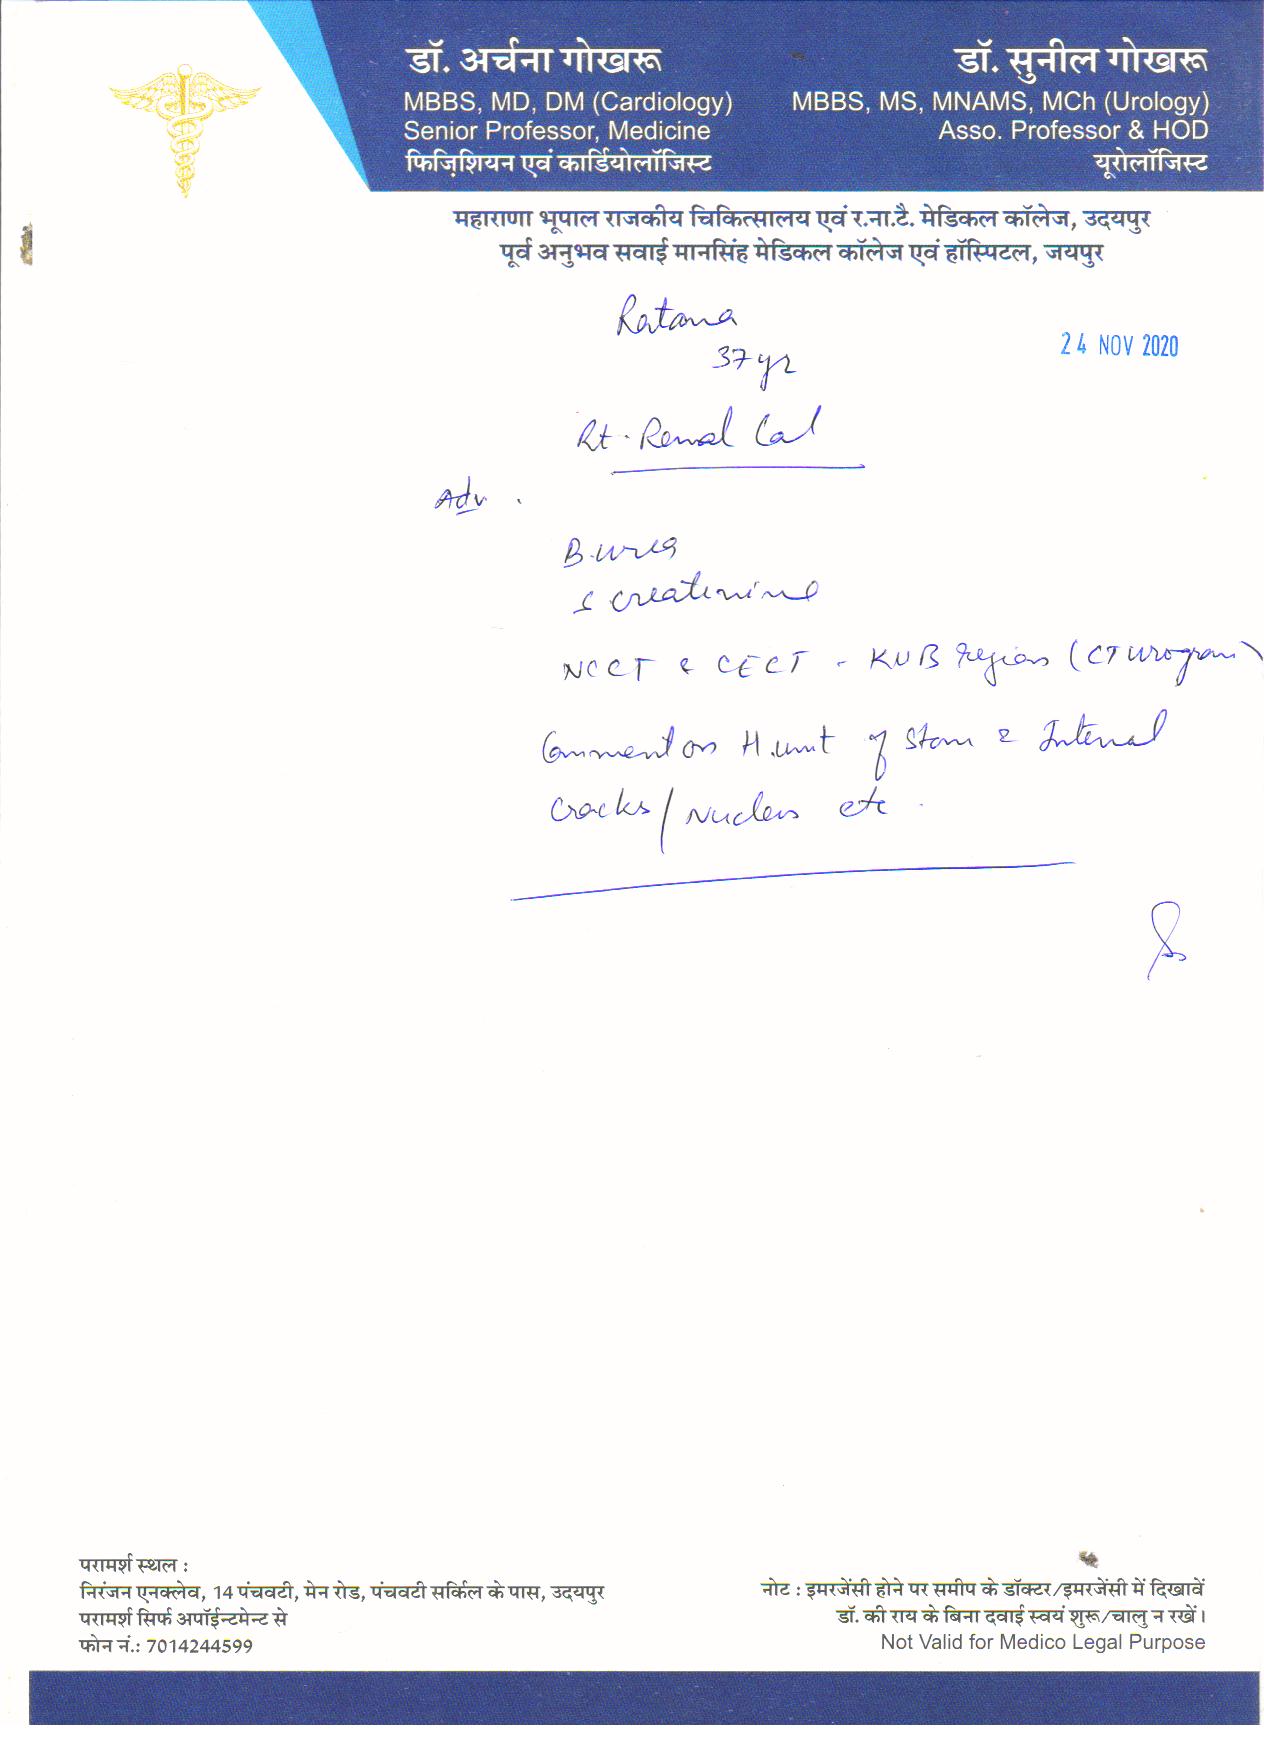 डॉ. अर्चना गोखरू
MBBS, MD, DM (Cardiology)
Senior Professor, Medicine
फिज़िशियन एवं कार्डियोलॉजिस्ट
डॉ. सुनील गोखरू
MBBS, MS, MNAMS, MCh (Urology)
Asso. Professor & HOD
यूरोलॉजिस्ट
महाराणा भूपाल राजकीय चिकित्सालय एवं र.ना.टै. मेडिकल कॉलेज, उदयपुर
पूर्व अनुभव सवाई मानसिंह मेडिकल कॉलेज एवं हॉस्पिटल, जयपुर
Ratana
37 yr
24 NOV 2020
Rt. Renal Cal
Adv.
B. urea
S creatinine
NCCT & CECT - KUB region (CT Urogram)
Comment on H. unit of Stone & Internal
Cracks / Nucleus etc.
परामर्श स्थल :
निरंजन एनक्लेव, 14 पंचवटी, मेन रोड, पंचवटी सर्किल के पास, उदयपुर
परामर्श सिर्फ अपॉईन्टमेन्ट से
फोन नं.: 7014244599
नोट : इमरजेंसी होने पर समीप के डॉक्टर/इमरजेंसी में दिखावें
डॉ. की राय के बिना दवाई स्वयं शुरू/चालु न रखें।
Not Valid for Medico Legal Purpose